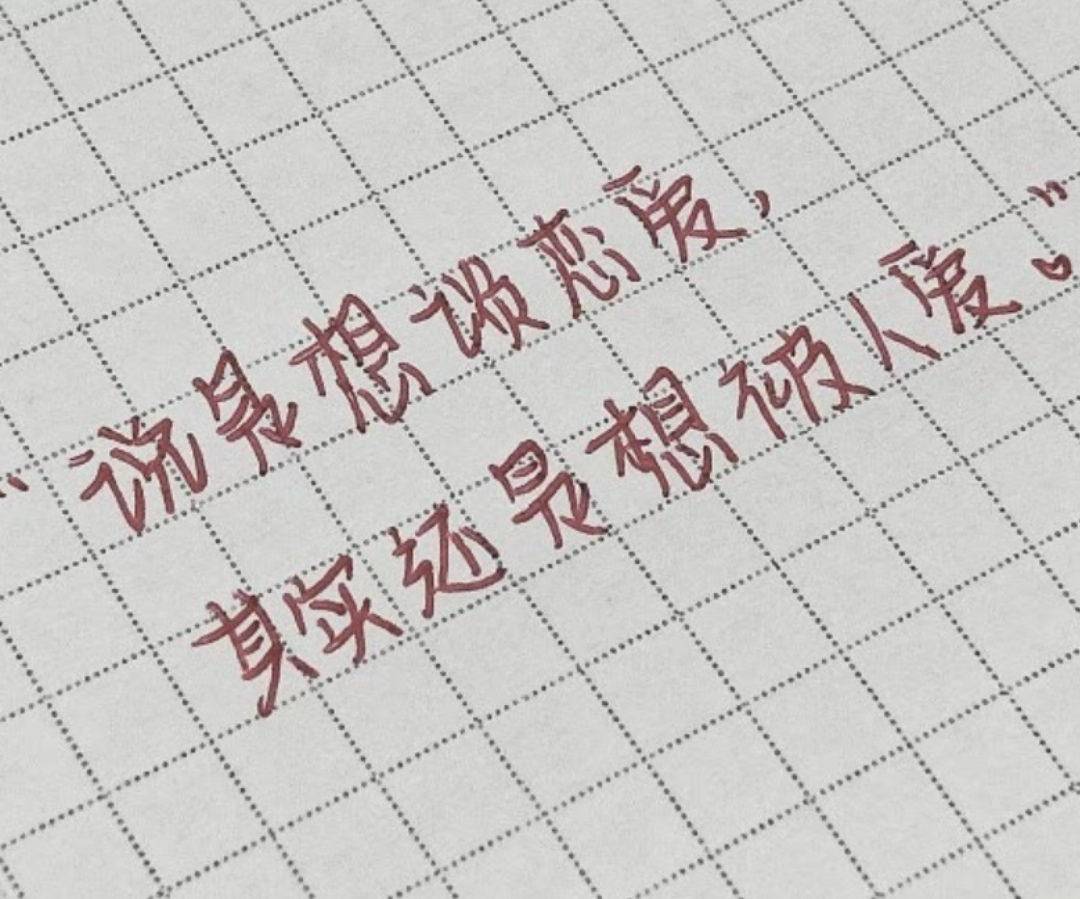 “说是想谈恋爱，
其实还是想被人爱。”